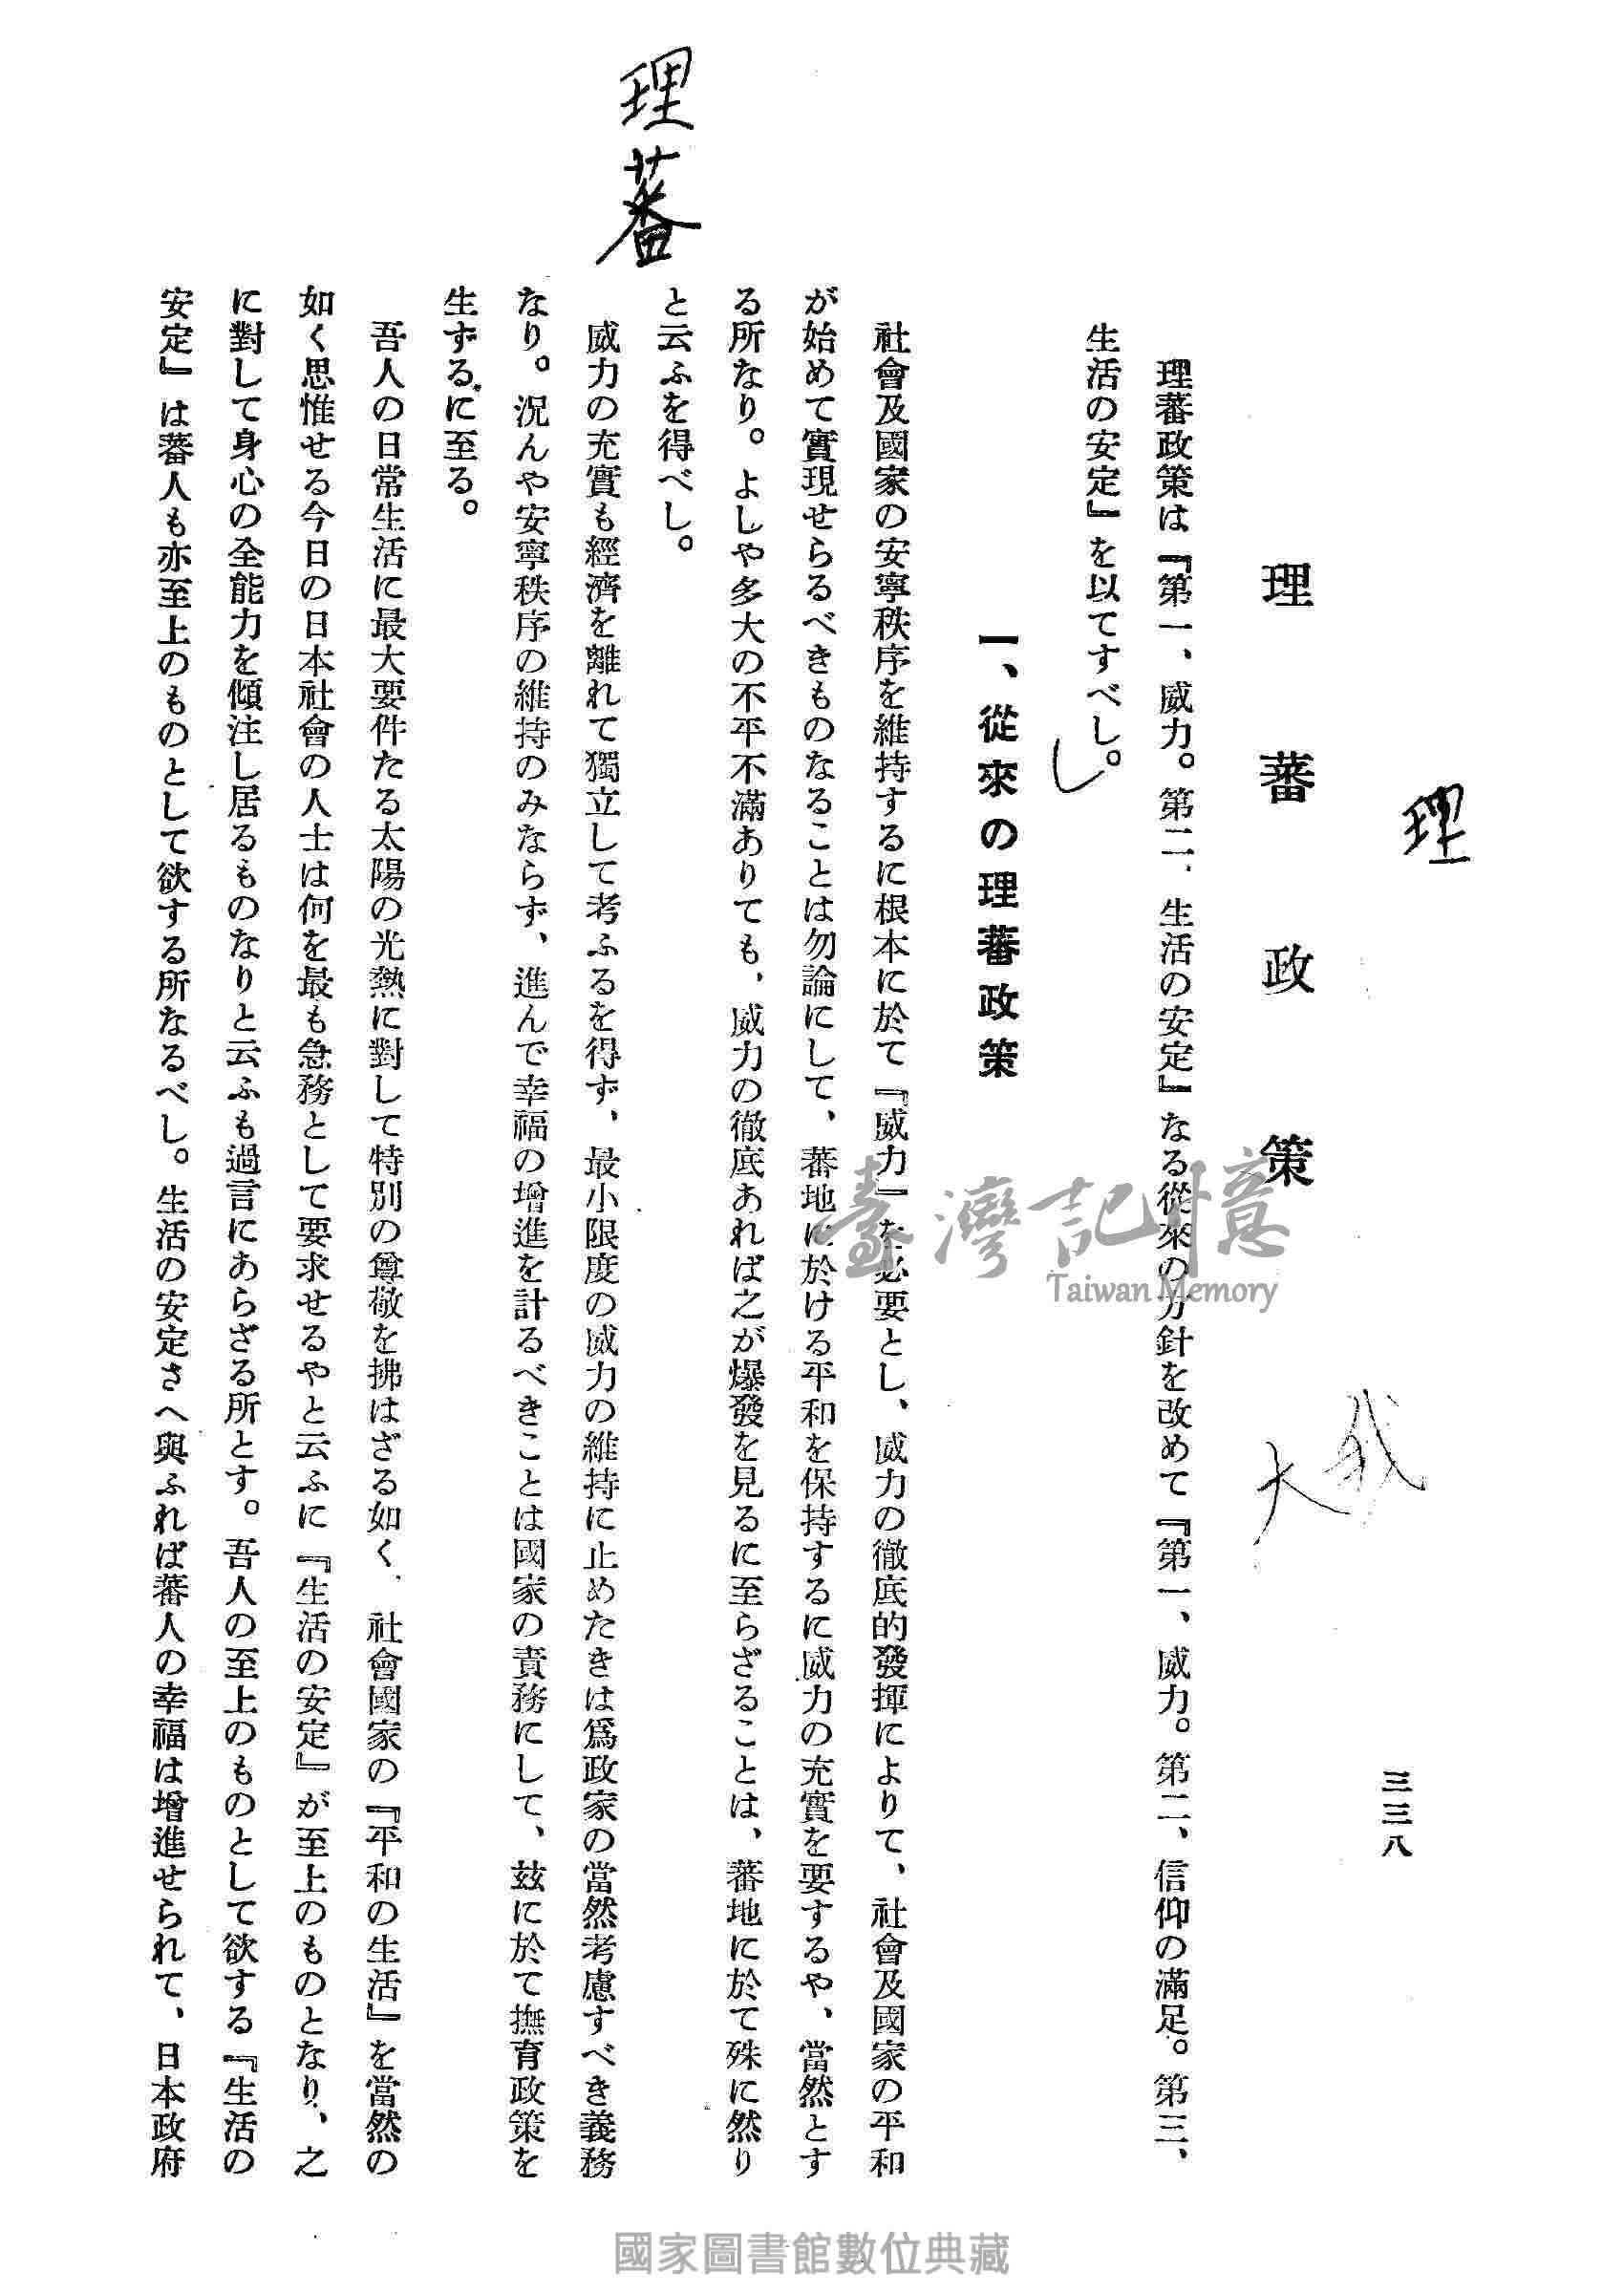 理
三三八
理蕃政策
大
理蕃政策は『第一、威力。第二、生活の安定』なる從來の方針を改めて『第一、威力。第二、信仰の滿足。第三、
生活の安定』を以てすべし。
一、從來の理蕃政策
社會及國家の安寧秩序を維持するに根本に於て『威力』を必要とし、威力の徹底的發揮によりて、社會及國家の平和
が始めて實現せらるべきものなることは勿論にして、蕃地に於ける平和を保持するに威力の充實を要するや、當然とす
る所なり。よしや多大の不平不滿ありても、威力の徹底あれば之が爆發を見るに至らざることは、蕃地に於て殊に然り
と云ふを得べし。
理蕃
威力の充實も經濟を離れて獨立して考ふるを得ず、最小限度の威力の維持に止めたきは爲政家の當然考慮すべき義務
なり。況んや安寧秩序の維持のみならず、進んで幸福の增進を計るべきことは國家の責務にして、玆に於て撫育政策を
生ずるに至る。
吾人の日常生活に最大要件たる太陽の光熱に對して特別の尊敬を拂はざる如く、社會國家の『平和の生活』を當然の
如く思惟せる今日の日本社會の人士は何を最も急務として要求せるやと云ふに『生活の安定』が至上のものとなり、之
に對して身心の全能力を傾注し居るものなりと云ふも過言にあらざる所とす。吾人の至上のものとして欲する『生活の
安定』は蕃人も亦至上のものとして欲する所なるべし。生活の安定さへ與ふれば蕃人の幸福は增進せられて、日本政府
臺灣記憶
Taiwan Memory
國家圖書館數位典藏